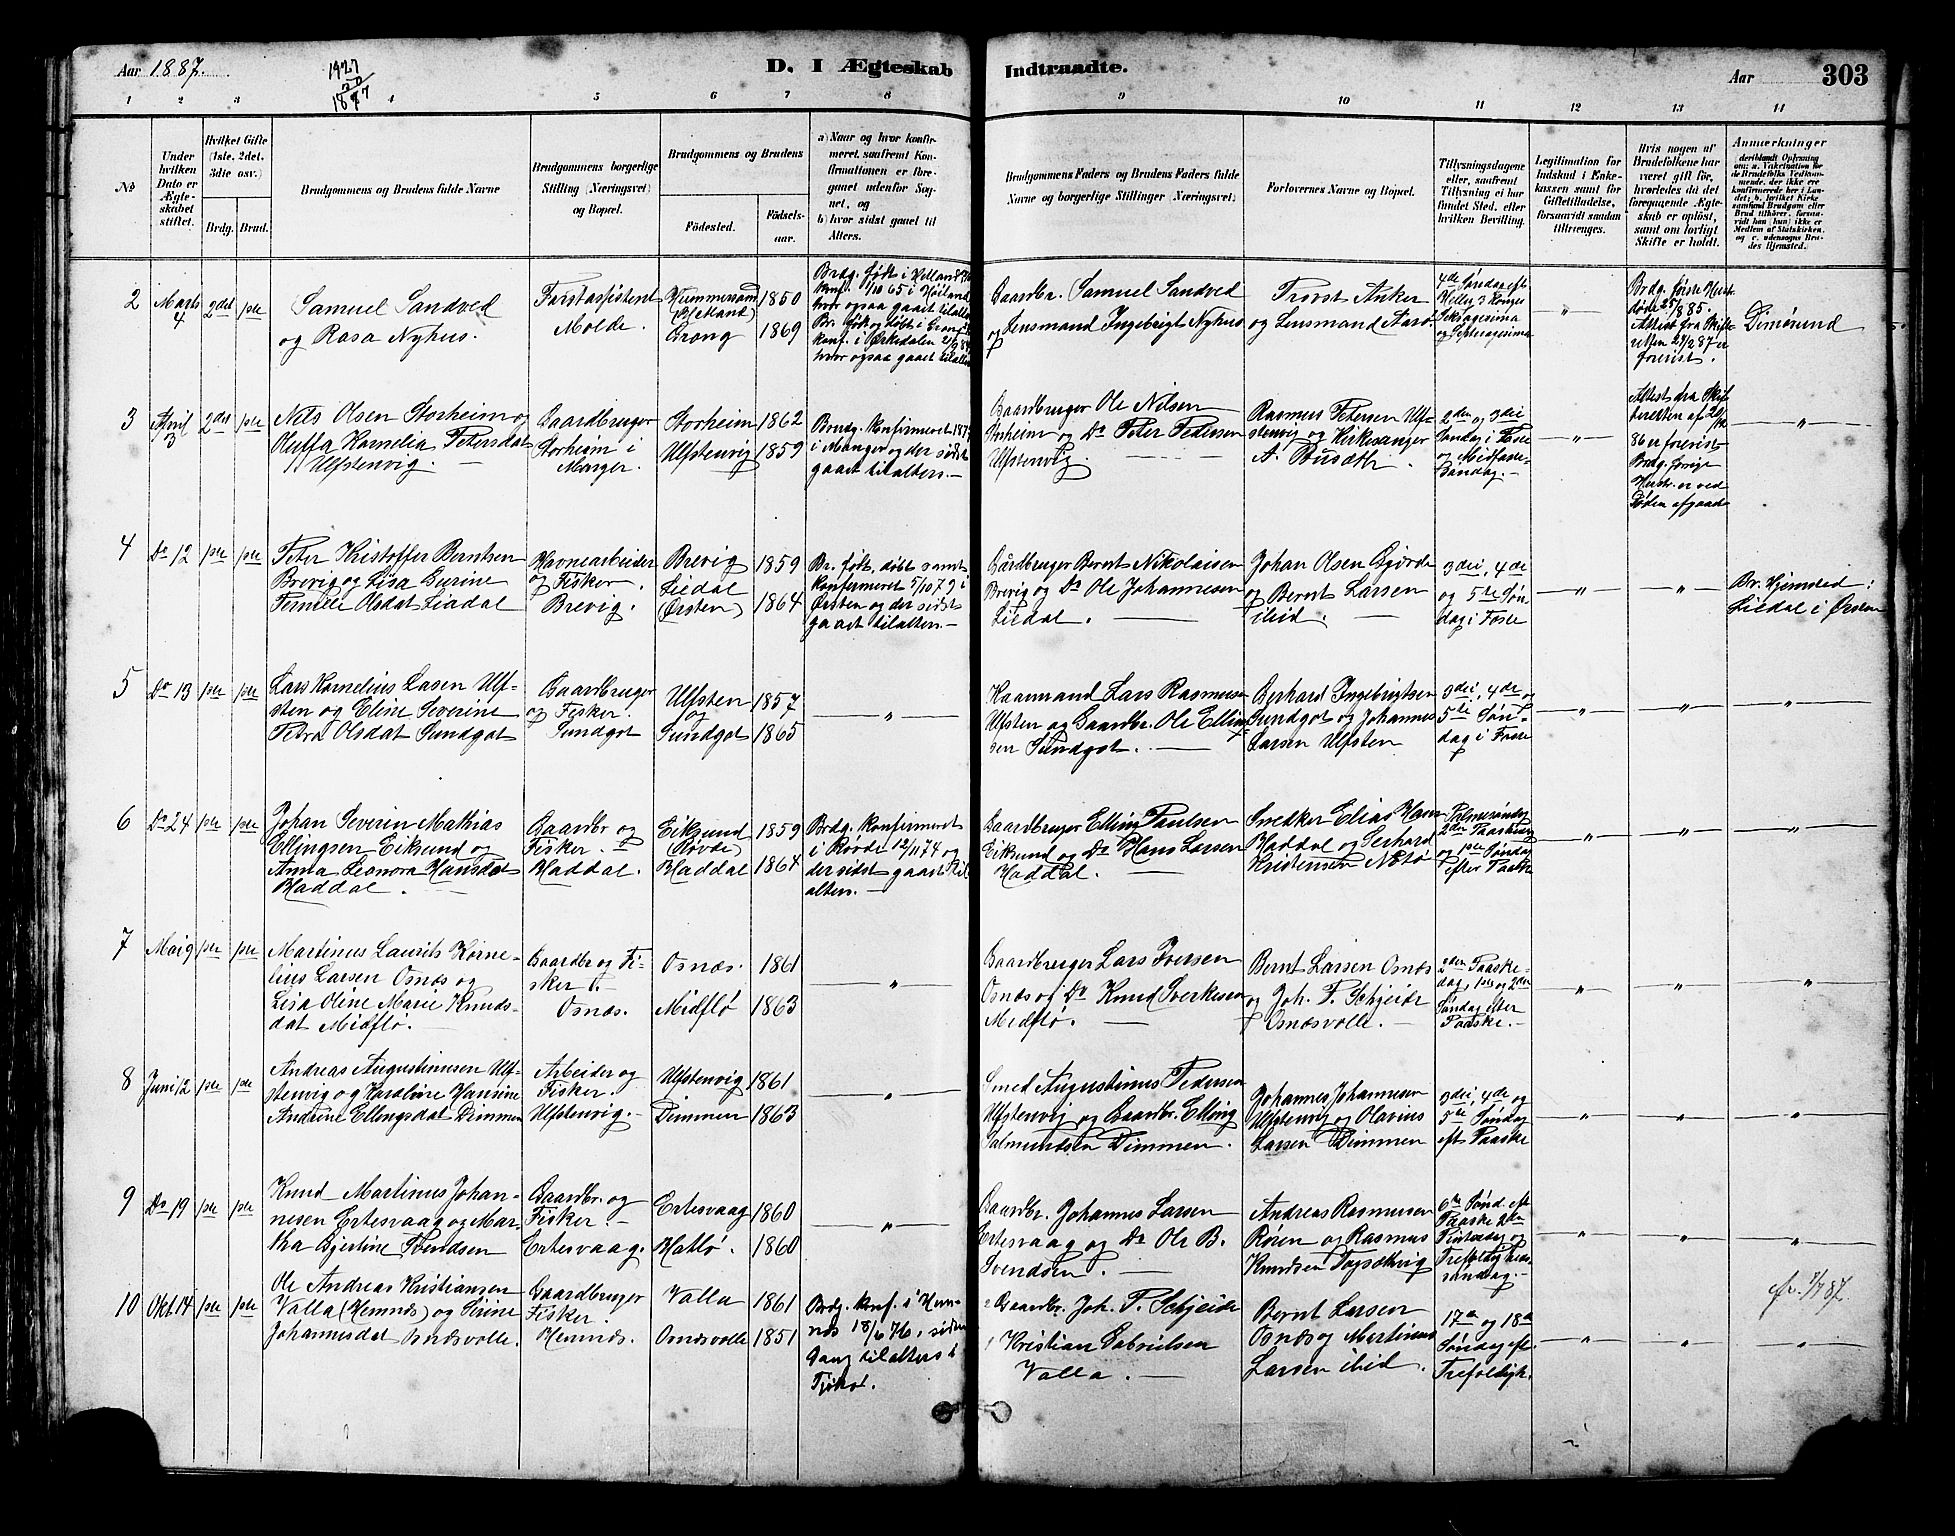 Aar 1887.
1927
20
1877
D. I Ægteskab Indtraadte.
Aar
303
1 2 3 4 5 6 7 8 9 10 11 12 13 14
No
Under hvilken Dato er Ægteskabet stiftet.
Hvilket Gifte (1ste, 2det, 3dte osv.)
Brdg. Brud.
Brudgommens og Brudens fulde Navne
Brudgommens borgerlige Stilling (Næringsvei) og Bopæl.
Brudgommens og Brudens
Födested.
Födselsaar.
a) Naar og hvor konfirmeret, saafremt Konfirmationen er foregaaet udenfor Sognet, og
b) hvor sidst gaaet til Alters.
Brudgommens Faders og Brudens Faders fulde Navne og borgerlige Stillinger (Næringsvei)
Forlovernes Navne og Bopæl.
Tillysningsdagene eller, saafremt Tillysning ei har fundet Sted, efter hvilken Bevilling.
Legitimation for Indskud i Enkekassen samt for Giftetilladelse, forsaavidt saadan tiltrænges.
Hvis nogen af Brudefolkene har været gift för, hvorledes da det foregaaende Ægteskab er oplöst, samt om lovligt Skifte er holdt.
Anmærkninger
2 Marts 4 2det 1ste
Samuel Sandved
og Rasa Nyhus.
Forstassistent
Molde.
(Hetland)
Grong
1850
1869
Gaardbr. Samuel Sandved
og Lensmand Ingebrigt Nyhus
Forst. Anker
og Lensmand Aarø.
4de Søndag eft
Hellig 3 Konger
Seksagesima
og Septuagesima
Brdg. første Hustr.
døde 25/ 885.
Attest fra Skifteretten
forevist.
Dimøsund
3 April 3 2det 1ste
Nils Olsen Storheim og
Oluffa Kornelia Petersdat
Ulfstenvig.
Gaardbruger
Storheim i
Manger.
Storheim 1862
Ulfstenvig 1859
Brudg. konfirmeret
i Manger og der sidst
gaaet tilalters.
Gaardbruger Ole Nilsen
Storheim og Do Peter Pedersen
Ulfstenvig.
Rasmus Petersen Ulfstenvig
og Kirkesanger
A. Busæth.
2den og 3die
Søndag i Faste
og Midfaste-
Søndag.
Attest fra Skifteretten af
86 er forevist.
Brdg. forrige
Hustr. er ved
Døden afgaaet.
4 Do 12 1ste 1ste
Peter Kristoffer Berntsen
Brevig og Lisa Gurine
Pernille Olsdat Liadal
Havnearbeider
og Fisker.
Brevig.
Brevig 1859
Liedal
(Ørsten) 1864
Br. født, døbt samt
konfirmeret 5/10 79 i
Ørsten og der sidst
gaaet tilalters.
Gårdbruger Bernt Nikolaisen
Brevig og Do Ole Johannesen
Liedal.
Johan Olsen Gjerde
og Bernt Larsen
ibid.
3die, 4de
og 5te Søndag
i Faste
Br. Hjemsted:
Liedal i Ørsten
5 Do 13 1ste 1ste
Lars Kornelius Lasen Ulfsten
og Eline Severine
Petra Olsdat Sundgot
Gaardbruger
og Fisker.
Sundgot
Ulfsten 1857
og
Sundgot 1865
Kaarmand Lars Rasmusen
Ulfsten og Gaardbr. Ole Ellingsen
Sundgot.
Gerhard Ingebrigtsen
Sundgot og Johannes
Larsen Ulfsten
3die, 4de og
5te Søndag
i Faste
6 Do 24 1ste 1ste
Johan Severin Mathias
Ellingsen Eiksund og
Anna Leonora Hansdat
Haddal.
Gaardbr og
Fisker.
Haddal.
Eiksund 1859
(Røvde)
Haddal 1864
Brdg. konfirmeret
i Røvde 12/11 74 og
der sidst gaaet til
alters.
Gaardbruger Elling Paulsen
Eiksund og Do Hans Larsen
Haddal.
Snedker Elias Hansen
Haddal og Gerhard
Kristensen Næsø
Palmesøndag
2den Paaskedag
og 1ste Søndag
efter Paaske
7 Mai 9 1ste 1ste
Martinus Laurits Kornelius
Larsen Osnæs og
Lisa Oline Marie Knudsdat
Midflø.
Gaardbr og Fisker.
Osnæs.
Osnæs. 1861
Midflø 1863
Gaardbruger Lars Iversen
Osnæs og Do Knud Sverkesen
Midflø.
Bernt Larsen Osnæs
og Joh. P. Schjeide
Osnæsvolle.
2den Paaskedag,
1ste og 2den
Søndag efter
Paaske.
8 Juni 12 1ste 1ste
Andreas Augustinusen Ulfstenvig
og Karoline Hansine
Andrine Ellingsdat Dimmen
Arbeider og
Fisker.
Ulfstenvig.
Ulfstenvig 1861
Dimmen 1863
Smed Augustinus Pedersen
Ulfstenvig og Gaardbr. Elling
Salmundsen Dimmen.
Johannes Johannesen
Ulfstenvig og Olavius
Larsen Dimmen
3die, 4de og
5te Søndag
eft Paaske
9 Do 19 1ste 1ste
Knud Martinus Johannesen
Ertesvaag og Martha
Gjertine Svendsen
Gaardbr. og
Fisker.
Ertesvaag.
Ertesvaag 1860
Hatlø. 1860
Gaardbr. Johannes Larsen
Ertesvaag og Do Ole B.
Svendsen.
Andreas Rasmusen
Røren og Rasmus
Knudsen
6te Sønd. eft
Paaske 2den
Pintsedag og
Trefoldigheds
søndag.
10 Okt. 14 1ste 1ste
Ole Andreas Kristiansen
Valla (Hemnæs) og Sirine
Johannesdat Osnæsvolle.
Gaardbruger
Fisker.
Hemnæs.
Valla 1861
Osnæsvolle 1851
Brdg. konf. i Hemnæs
18/6 76, sidste
Gang tilalters i
Tjøtø.
2 Gaardbr. Joh. P. Schjeide
1 Kristian Gabrielsen
Valla.
Bernt Larsen
Osnæs og Martinus
Larsen ibid.
17de og 18de
Søndag eft.
Trefoldigh.